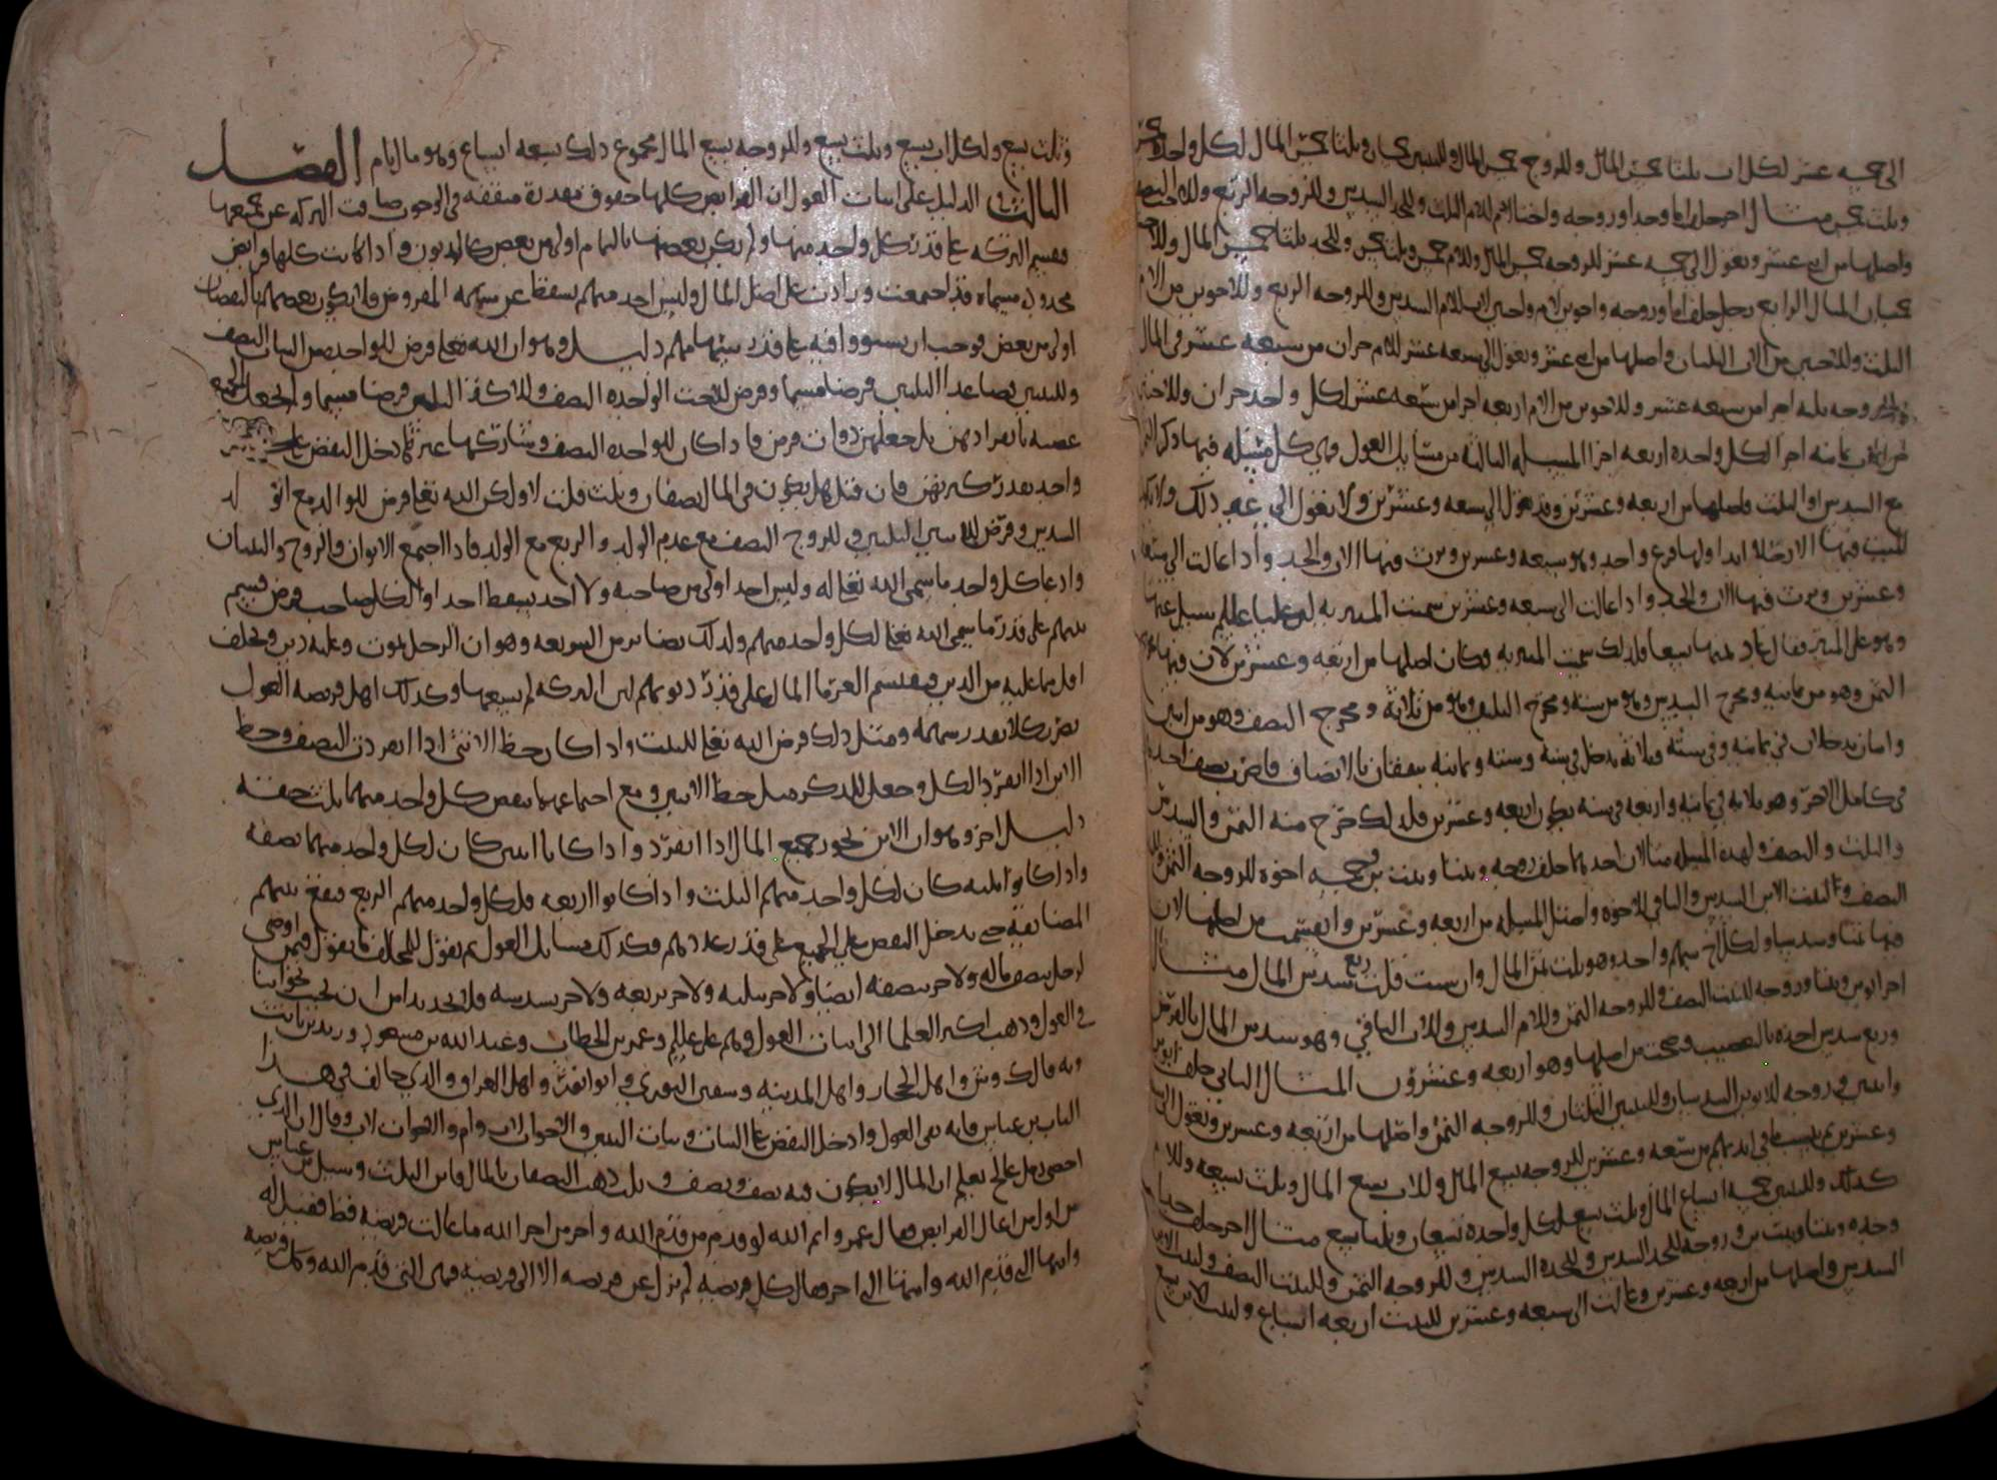 الى خمسه عشر لكل اب ثلثا خمس المال وللزوج خمس المال وللبنتين خمسان وثلثا خمس المال لكل واحده خمس
وثلث خمس مثال اخر رجل خلف اما وجدا وزوجه واختا للام الثلث وللجد السدس وللزوجه الربع وللاخت النصف
واصلها من اثنى عشر وتعول الى خمسه عشر للزوجه خمس المال وللام خمس وثلث خمس وللجد ثلثا خمس المال وللاخت
خمسان المثال الرابع رجل خلف اما وزوجه واخوين لام واختين لاب للام السدس وللزوجه الربع وللاخوين من الام
الثلث وللاختين من الاب الثلثان واصلها من اثنى عشر وتعول الى سبعه عشر للام جزان من سبعه عشر فى المال
وللزوجه ثلثه اجزا من سبعه عشر وللاخوين من الام اربعه اجزا من سبعه عشر لكل واحد جزان وللاختين
من الاب ثمانيه اجزا لكل واحده اربعه اجزا المسئله الثالثه من مسايل العول وهي كل مسئله فيها ذكر الثمن
مع السدس او الثلث فاصلها من اربعه وعشرين وقد تعول الى سبعه وعشرين ولا تعول الى غير ذلك ولا يكون
الميت فيها الا رجلا ابدا ولها فرع واحد وهو سبعه وعشرين ويرث فيها الاب والجد واذا عالت الى سبعه
وعشرين ويرث فيها الاب والجد واذا عالت الى سبعه وعشرين سميت المنبريه لان عليا عليلم سيل عنها
وهو على المنبر فقال عاد ثمنها تسعا فلذلك سميت المنبريه وكان اصلها من اربعه وعشرين لان فيها مخرج
الثمن وهو من ثمانيه ومخرج السدس وهو من سته ومخرج الثلث وهو من ثلاثة ومخرج النصف وهو من اثنين
واثنان يدخلان فى ثمانيه وفى سته وثلاثه يدخل فى سته وسته وثمانيه يتفقان بالانصاف فاضرب نصف احدهما
فى كامل الاخر وهو ثلاثه فى ثمانيه واربعه فى سته يكون اربعه وعشرين فلذلك خرج منه الثمن والسدس
والثلث والنصف ولهذه المسئله مثالان احدهما خلف زوجه وبنتا وبنت بن وخمسه اخوه للزوجه الثمن وللبنت
النصف ولبنت الابن السدس والباقى للاخوه واصل المسئله من اربعه وعشرين وانقسمت من اصلها لان
فيها ثمنا وسدسا ولكل اخ سهم واحد وهو ثلث ثمن المال وان شيت قلت ربع سدس المال مثال
اخر ابوين وبنتا وزوجه للبنت النصف وللزوجه الثمن وللام السدس وللاب الباقي وهو سدس المال بالفرض
وربع سدس اخذه بالتعصيب وصحت من اصلها وهو اربعه وعشرون المثال الثانى خلف ابوين
وابنتين وزوجه للابوين السدسان وللبنتين الثلثان وللزوجه الثمن واصلها من اربعه وعشرين وتعول الى سبعه
وعشرين للزوجه تسع المال وللاب تسع المال وثلث تسعه وللام
كذلك وللبنتين خمسه اتساع المال وثلث تسع لكل واحده تسعان وثلثا تسع مثال اخر خلف جدا
وجده وبنتا وبنت بن وزوجه للجد السدس وللجده السدس وللزوجه الثمن وللبنت النصف ولبنت الابن
السدس واصلها من اربعه وعشرين وعالت الى سبعه وعشرين للبنت اربعه اتساع ولبنت الابن تسع
وثلث تسع ولكل اب تسع وثلث تسع وللزوجه تسع المال مجموع ذلك تسعه اتساع وهو مال تام الفصل
الثالث الدليل على اثبات العول ان الفرايض كلها حقوق مقدرة متفقه فى الوجوب ضاقت التركه عن جميعها
فقسم التركه على قدر كل واحد منها ولم يكن بعضها بالتمام اولى من بعض كالديون واذا كانت كلها فرايض
محدوده مسماه قد اجتمعت وزادت على اصل المال وليس احد منهم يسقط عن سهمه المفروض ولا يكون بعضهم بالنقصان
اولى من بعض فوجب ان يستووا فيه على قدر سهامهم دليل وهو ان الله تعالى فرض للواحده من البنات النصف
وللبنتين فصاعدا الثلثين فرضا مسما وفرض للاخت الواحده النصف وللاكثر الثلثين فرضا مسما ولم يجعل الجميع
عصبه بانفرادهن بل جعلهن ذوات فرض فاذا كان للواحده النصف وشاركها غيرها دخل النقص على كل
واحد بعد تركهن فان قيل هل يكون فى المال نصفان وثلث قلت لا ولكن الله تعالى فرض للوالد مع الولد
السدس وفرض للابنتين الثلثين وللزوج النصف مع عدم الولد والربع مع الولد فاذا اجتمع الابوان والزوج والبنتان
وادعا كل واحد ما سمى الله تعالى له وليس احد اولى من صاحبه ولا احد يسقط احدا ولكل صاحب فرض قسم
بينهم على قدر ما سمى الله تعالى لكل واحد منهم ولذلك نظاير من الشريعه وهو ان الرجل يموت وعليه دين ويخلف
اقل مما عليه من الدين فيقتسم الغرما المال على قدر ديونهم لان التركه لم تسعها وكذلك اهل فريضه العول
يضرب كلا بقدر سهمه ومثل ذلك فرض الله تعالى للبنت واذا كان حظ الانثى اذا انفردت النصف وحظ
الابن اذا انفرد الكل وجعل للذكر مثل حظ الانثيين ومع اجتماعهما نقص كل واحد منهما ثلث حقه
دليل اخر وهو ان الابن يحوز جميع المال اذا انفرد واذا كانا اثنين كان لكل واحد منهما نصفه
واذا كانوا ثلثه كان لكل واحد منهم الثلث واذا كانوا اربعه فلكل واحد منهم الربع فتقع بينهم
المضايقه حتى يدخل النقص على الجميع على قدر عددهم فكذلك مسايل العول ثم نقول للمخالف ما تقول فيمن اوصى
لرجل بنصف ماله ولاخر بنصفه ايضا ولاخر بثلثه ولاخر بربعه ولاخر بسدسه فلا تجد بدا من ان تجيب بجوابنا
في العول وذهب اكثر العلما الى اثبات العول وهم على عليلم وعمر بن الخطاب وعبد الله بن مسعود وزيد بن ثابت
وبه قال ك وش واهل الحجاز واهل المدينه وسفين الثورى واهل العراق والذي خالف في هذا
الباب بن عباس فانه نفى العول وادخل النقص على البنات وبنات الابن والاخوات لاب وام والاخوات لاب وقال ان الذي
احصى رمل عالج يعلم ان المال لا يكون فيه نصف ونصف وثلث ذهب النصفان بالمال فاين الثلث وسيل بن عباس
من اول من اعال الفرايض قال عمر وايم الله لو قدم من قدم الله واخر من اخر الله ما عالت فريضه قط فقيل له
وايها التى قدم الله وايها التى اخر فقال كل فريضه لم تزل عن فريضه الا الى فريضه فهى التى قدم الله وكل فريضه